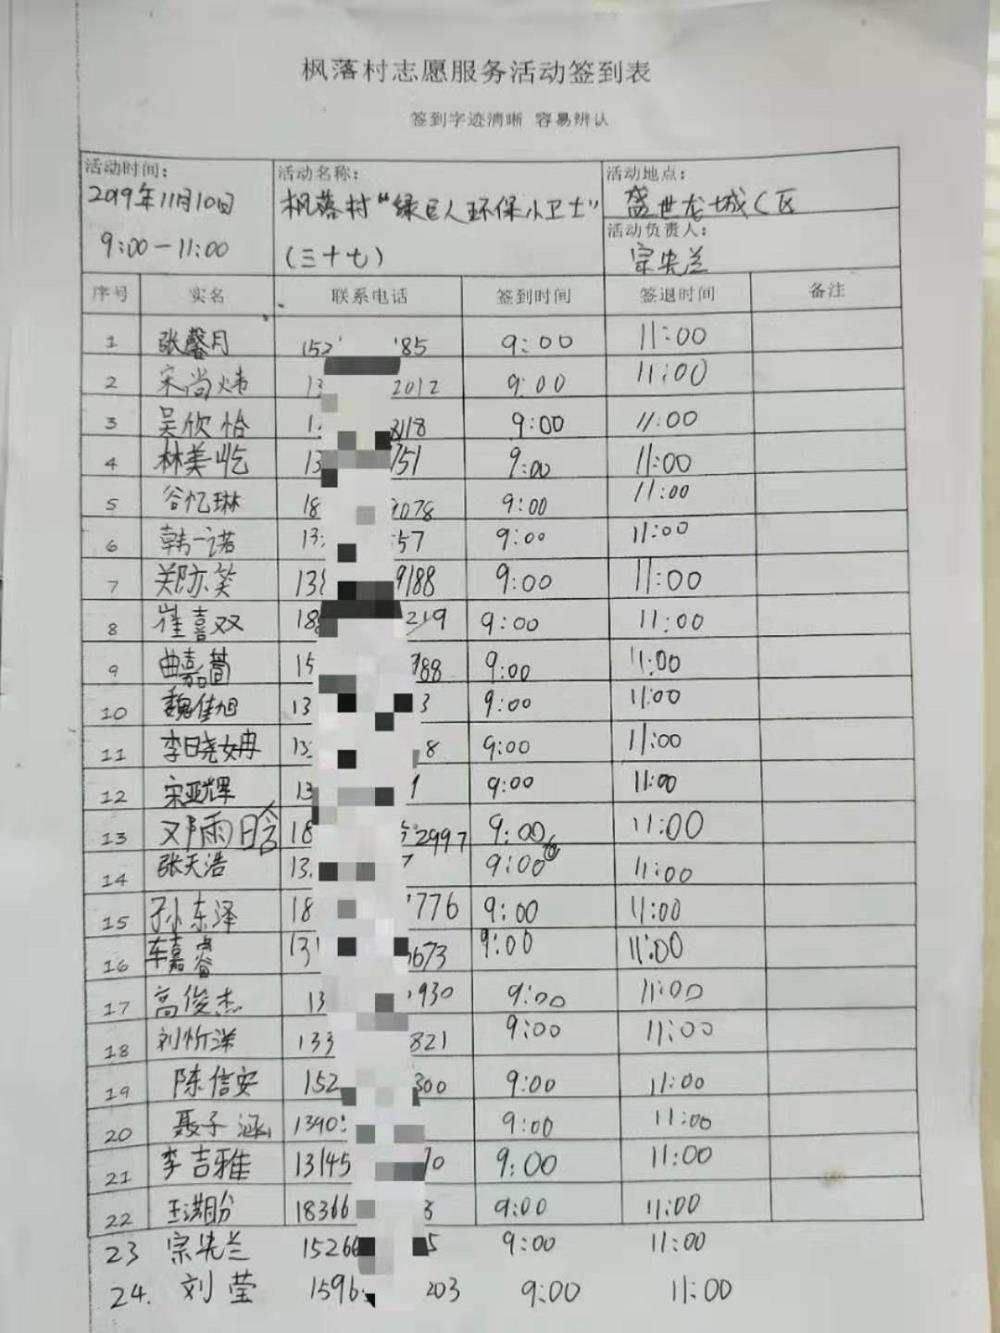 枫落村志愿服务活动签到表
签到字迹清晰 容易辨认
活动时间: 2019年11月10日 9:00-11:00
活动名称: 枫落村"绿巨人环保小卫士" (三十七)
活动地点: 盛世龙城C区
活动负责人: 宗先兰
序号 实名 联系电话 签到时间 签退时间 备注
1 张馨月 152 85 9:00 11:00
2 宋尚炜 13 2012 9:00 11:00
3 吴欣怡 1 218 9:00 11:00
4 林美屹 13 151 9:00 11:00
5 谷忆琳 18 9078 9:00 11:00
6 韩一诺 13 57 9:00 11:00
7 郑亦笑 13 9188 9:00 11:00
8 崔喜双 18 219 9:00 11:00
9 曲嘉 15 788 9:00 11:00
10 魏佳旭 13 3 9:00 11:00
11 李晓姌 13 8 9:00 11:00
12 宋亚辉 13 9:00 11:00
13 邓雨晗 18 2997 9:00 11:00
14 张天浩 13 9:00 11:00
15 孙东泽 18 776 9:00 11:00
16 车嘉睿 13 673 9:00 11:00
17 高俊杰 13 930 9:00 11:00
18 刘忻洋 133 821 9:00 11:00
19 陈信安 152 300 9:00 11:00
20 聂子涵 1390 9:00 11:00
21 李吉雅 13145 0 9:00 11:00
22 王淇盼 18366 3 9:00 11:00
23 宗先兰 15266 5 9:00 11:00
24. 刘莹 1596 203 9:00 11:00